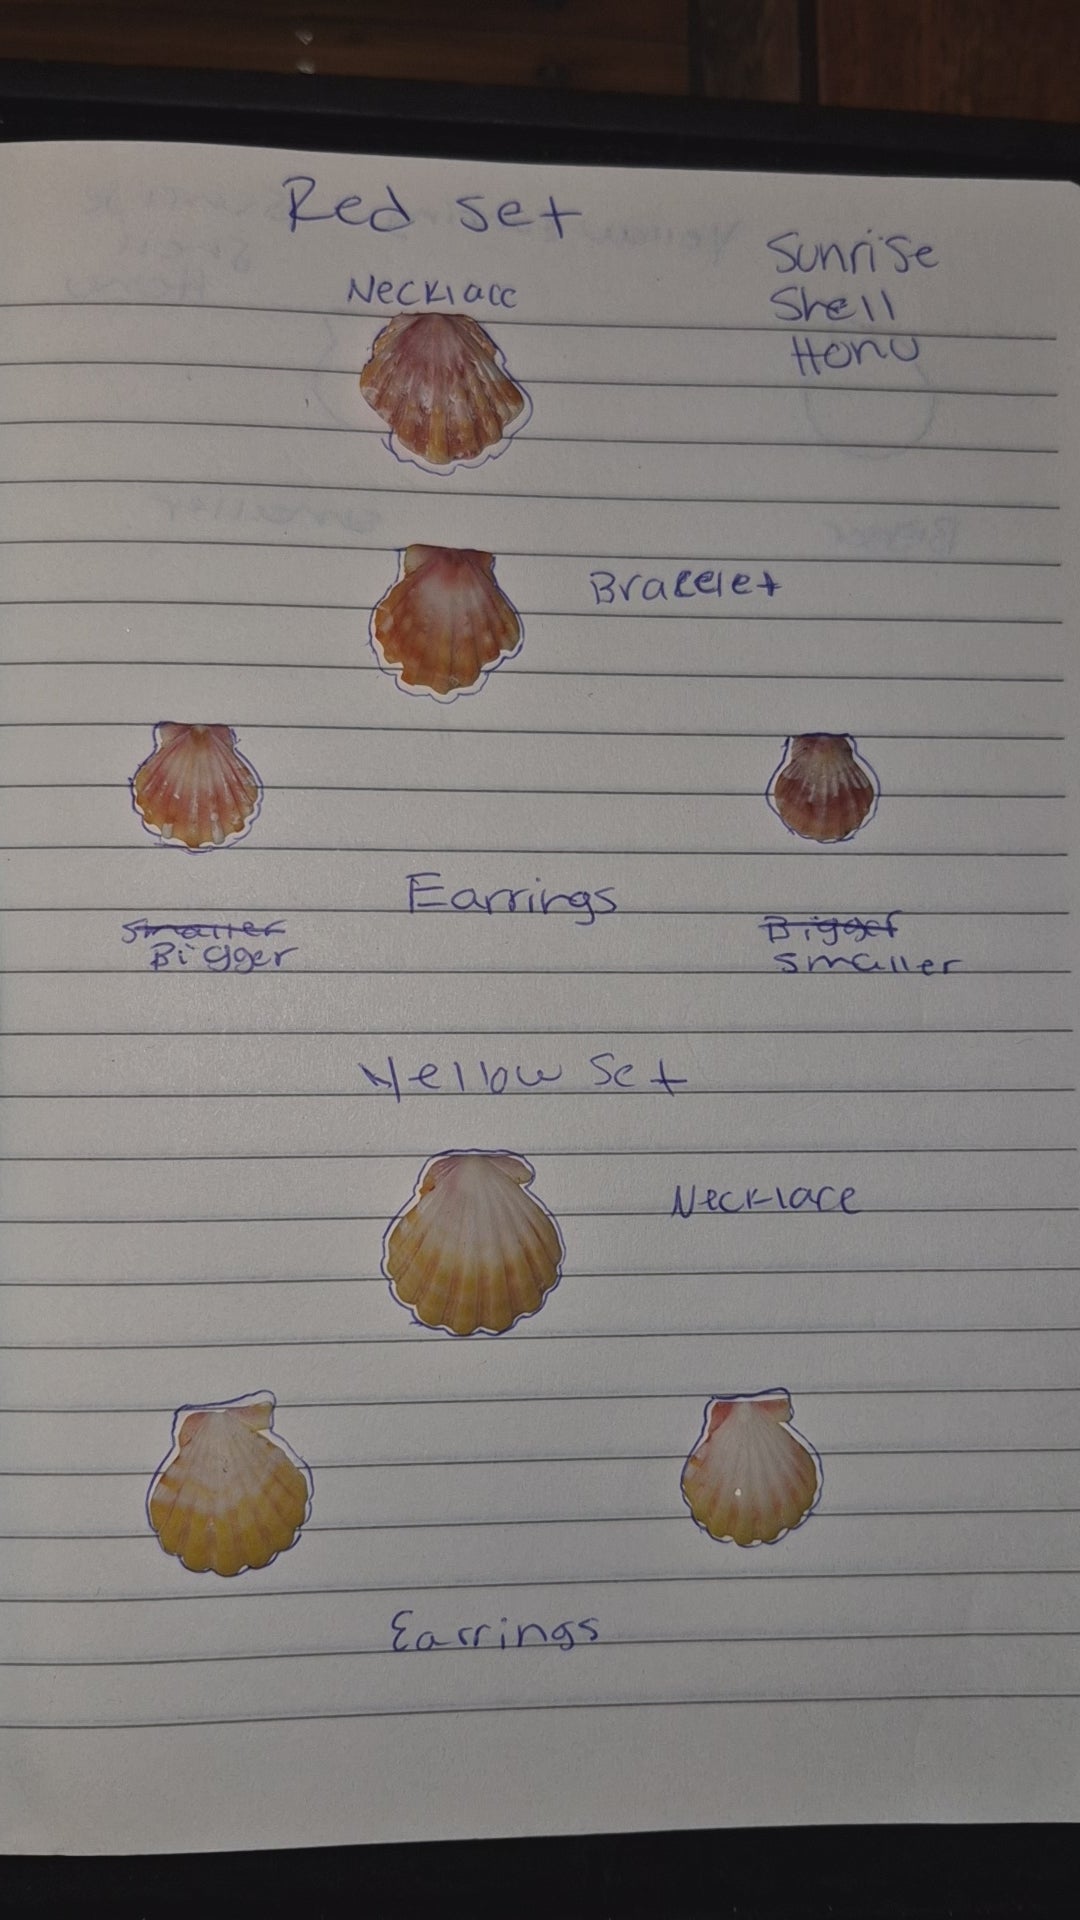 Red set
Sunrise
Shell
Honu
Necklace
Bracelet
Earrings
Smaller
Bigger
Bigger
smaller
Yellow Set
Necklace
Earrings